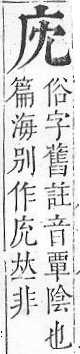 庑
俗字舊註音覃陰也
篇海别作庑㷊非